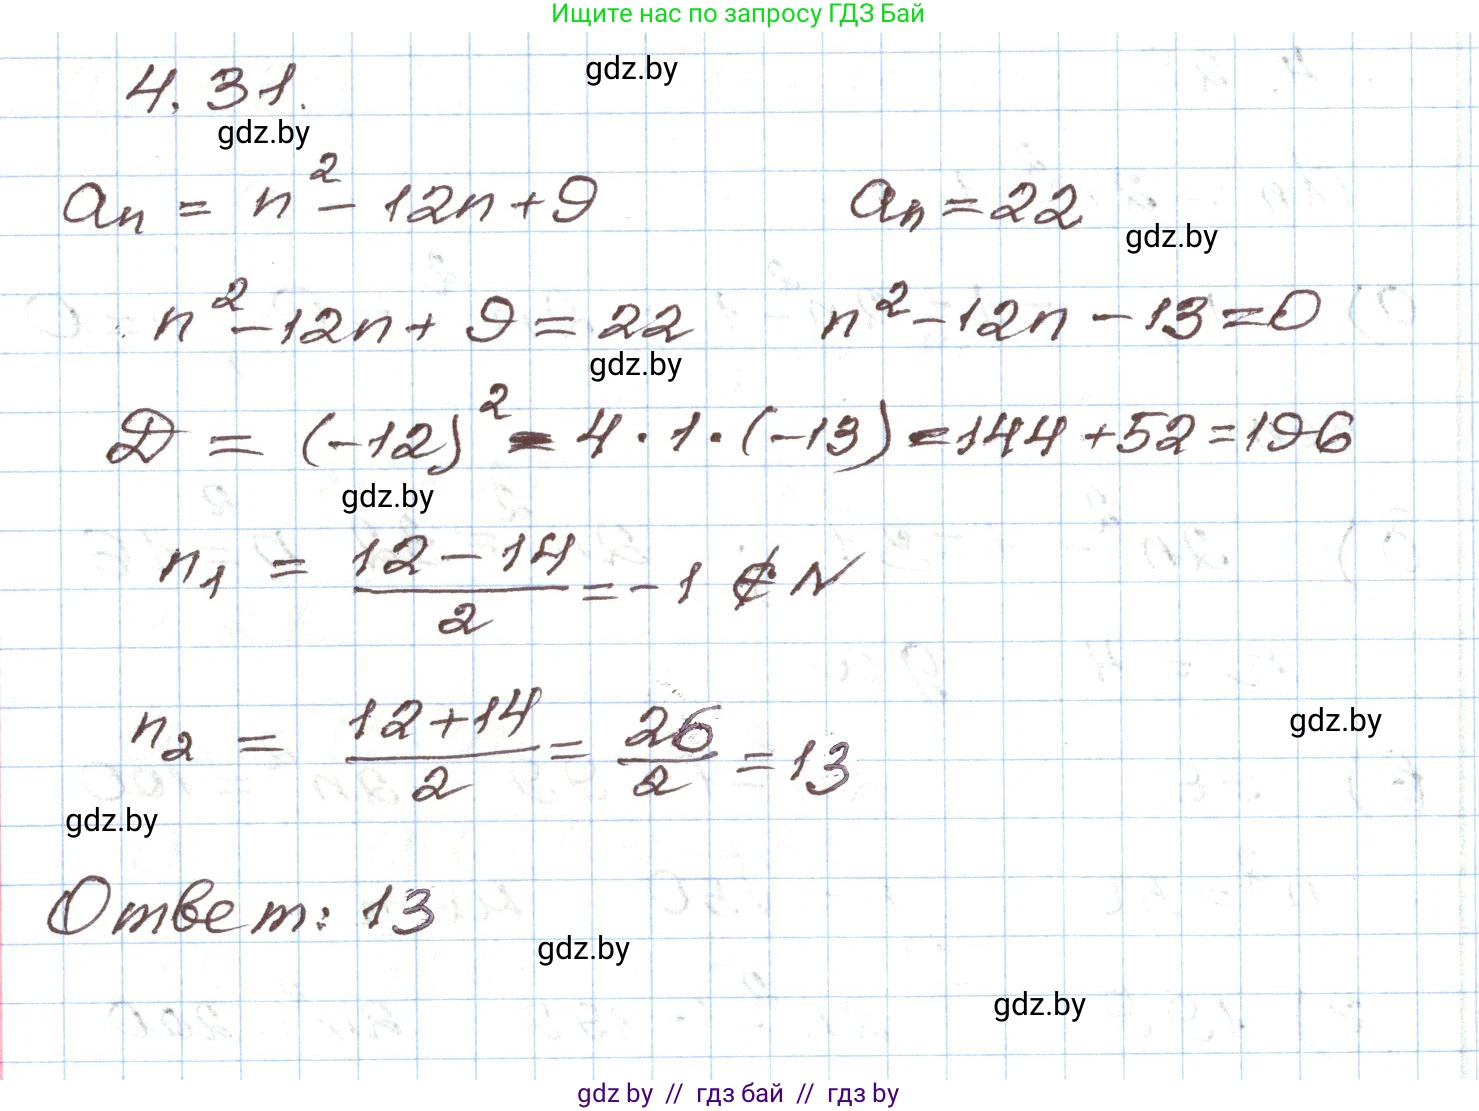 Ищите нас по запросу ГДЗ Бай
gdz.by
4.31.
gdz.by
aₙ = n² - 12n + 9    aₙ = 22
gdz.by
n² - 12n + 9 = 22    n² - 12n - 13 = 0
gdz.by
D = (-12)² - 4 · 1 · (-13) = 144 + 52 = 196
gdz.by
n₁ = (12 - 14)/2 = -1 ∉ N
n₂ = (12 + 14)/2 = 26/2 = 13
gdz.by
gdz.by
Ответ: 13
gdz.by
gdz.by
gdz by // гдз бай // гдз by